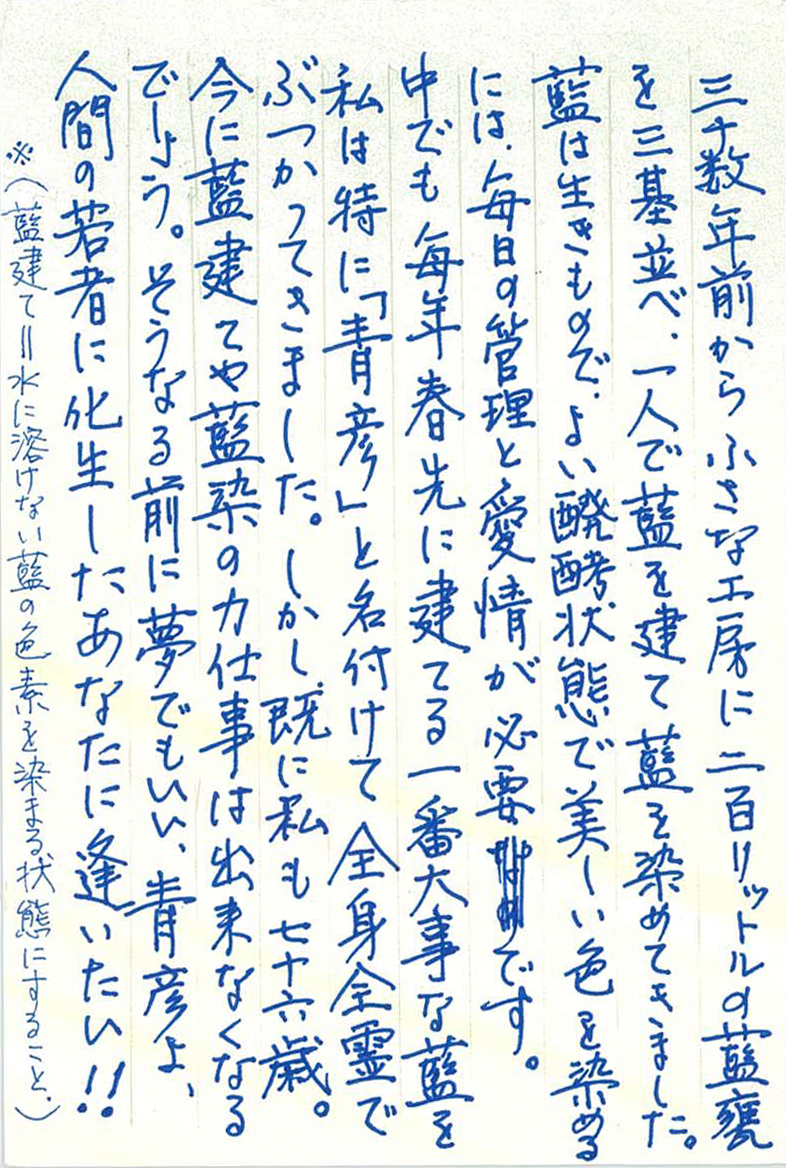 三十数年前から小さな工房に二百リットルの藍甕
を三基並べ、一人で藍を建て藍を染めてきました。
藍は生きもので、よい醗酵状態で美しい色を染める
には、毎日の管理と愛情が必要です。
中でも毎年春先に建てる一番大事な藍を
私は特に「青彦」と名付けて全身全霊で
ぶつかってきました。しかし、既に私も七十六歳。
今に藍建てや藍染の力仕事は出来なくなる
でしょう。そうなる前に夢でもいい、青彦よ、
人間の若者に化生したあなたに逢いたい!!
※(藍建て=水に溶けない藍の色素を染まる状態にすること。)